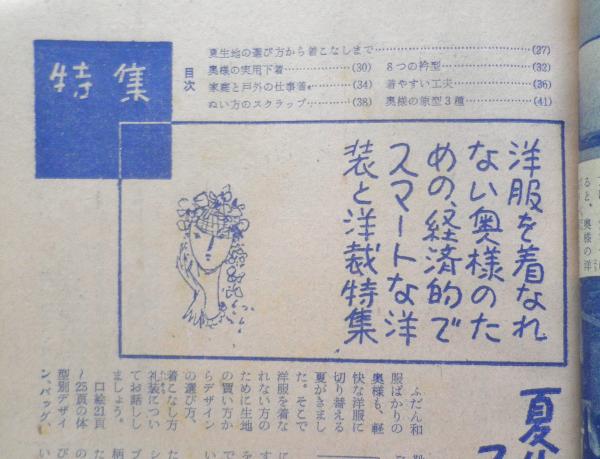 特集
目次
夏生地の選び方から着こなしまで…(27)
奥様の実用下着…(30)
8つの衿型…(32)
家庭と戸外の仕事着…(34)
着やすい工夫…(36)
ぬい方のスクラップ…(38)
奥様の原型3種…(41)
洋服を着なれ
ない奥様のた
めの、経済的で
スマートな洋
装と洋裁特集
ふだん和
服ばかりの
奥様も、軽
快な洋服に
切り替える
夏がきまし
た。そこで
洋服を着な
れない方の
ために生地
の買い方か
らデザイン
の選び方、
着こなし方
礼装につい
てお話しし
ましょう。
口絵21頁
~25頁の体
型別デザイ
ン、バッグ、
夏